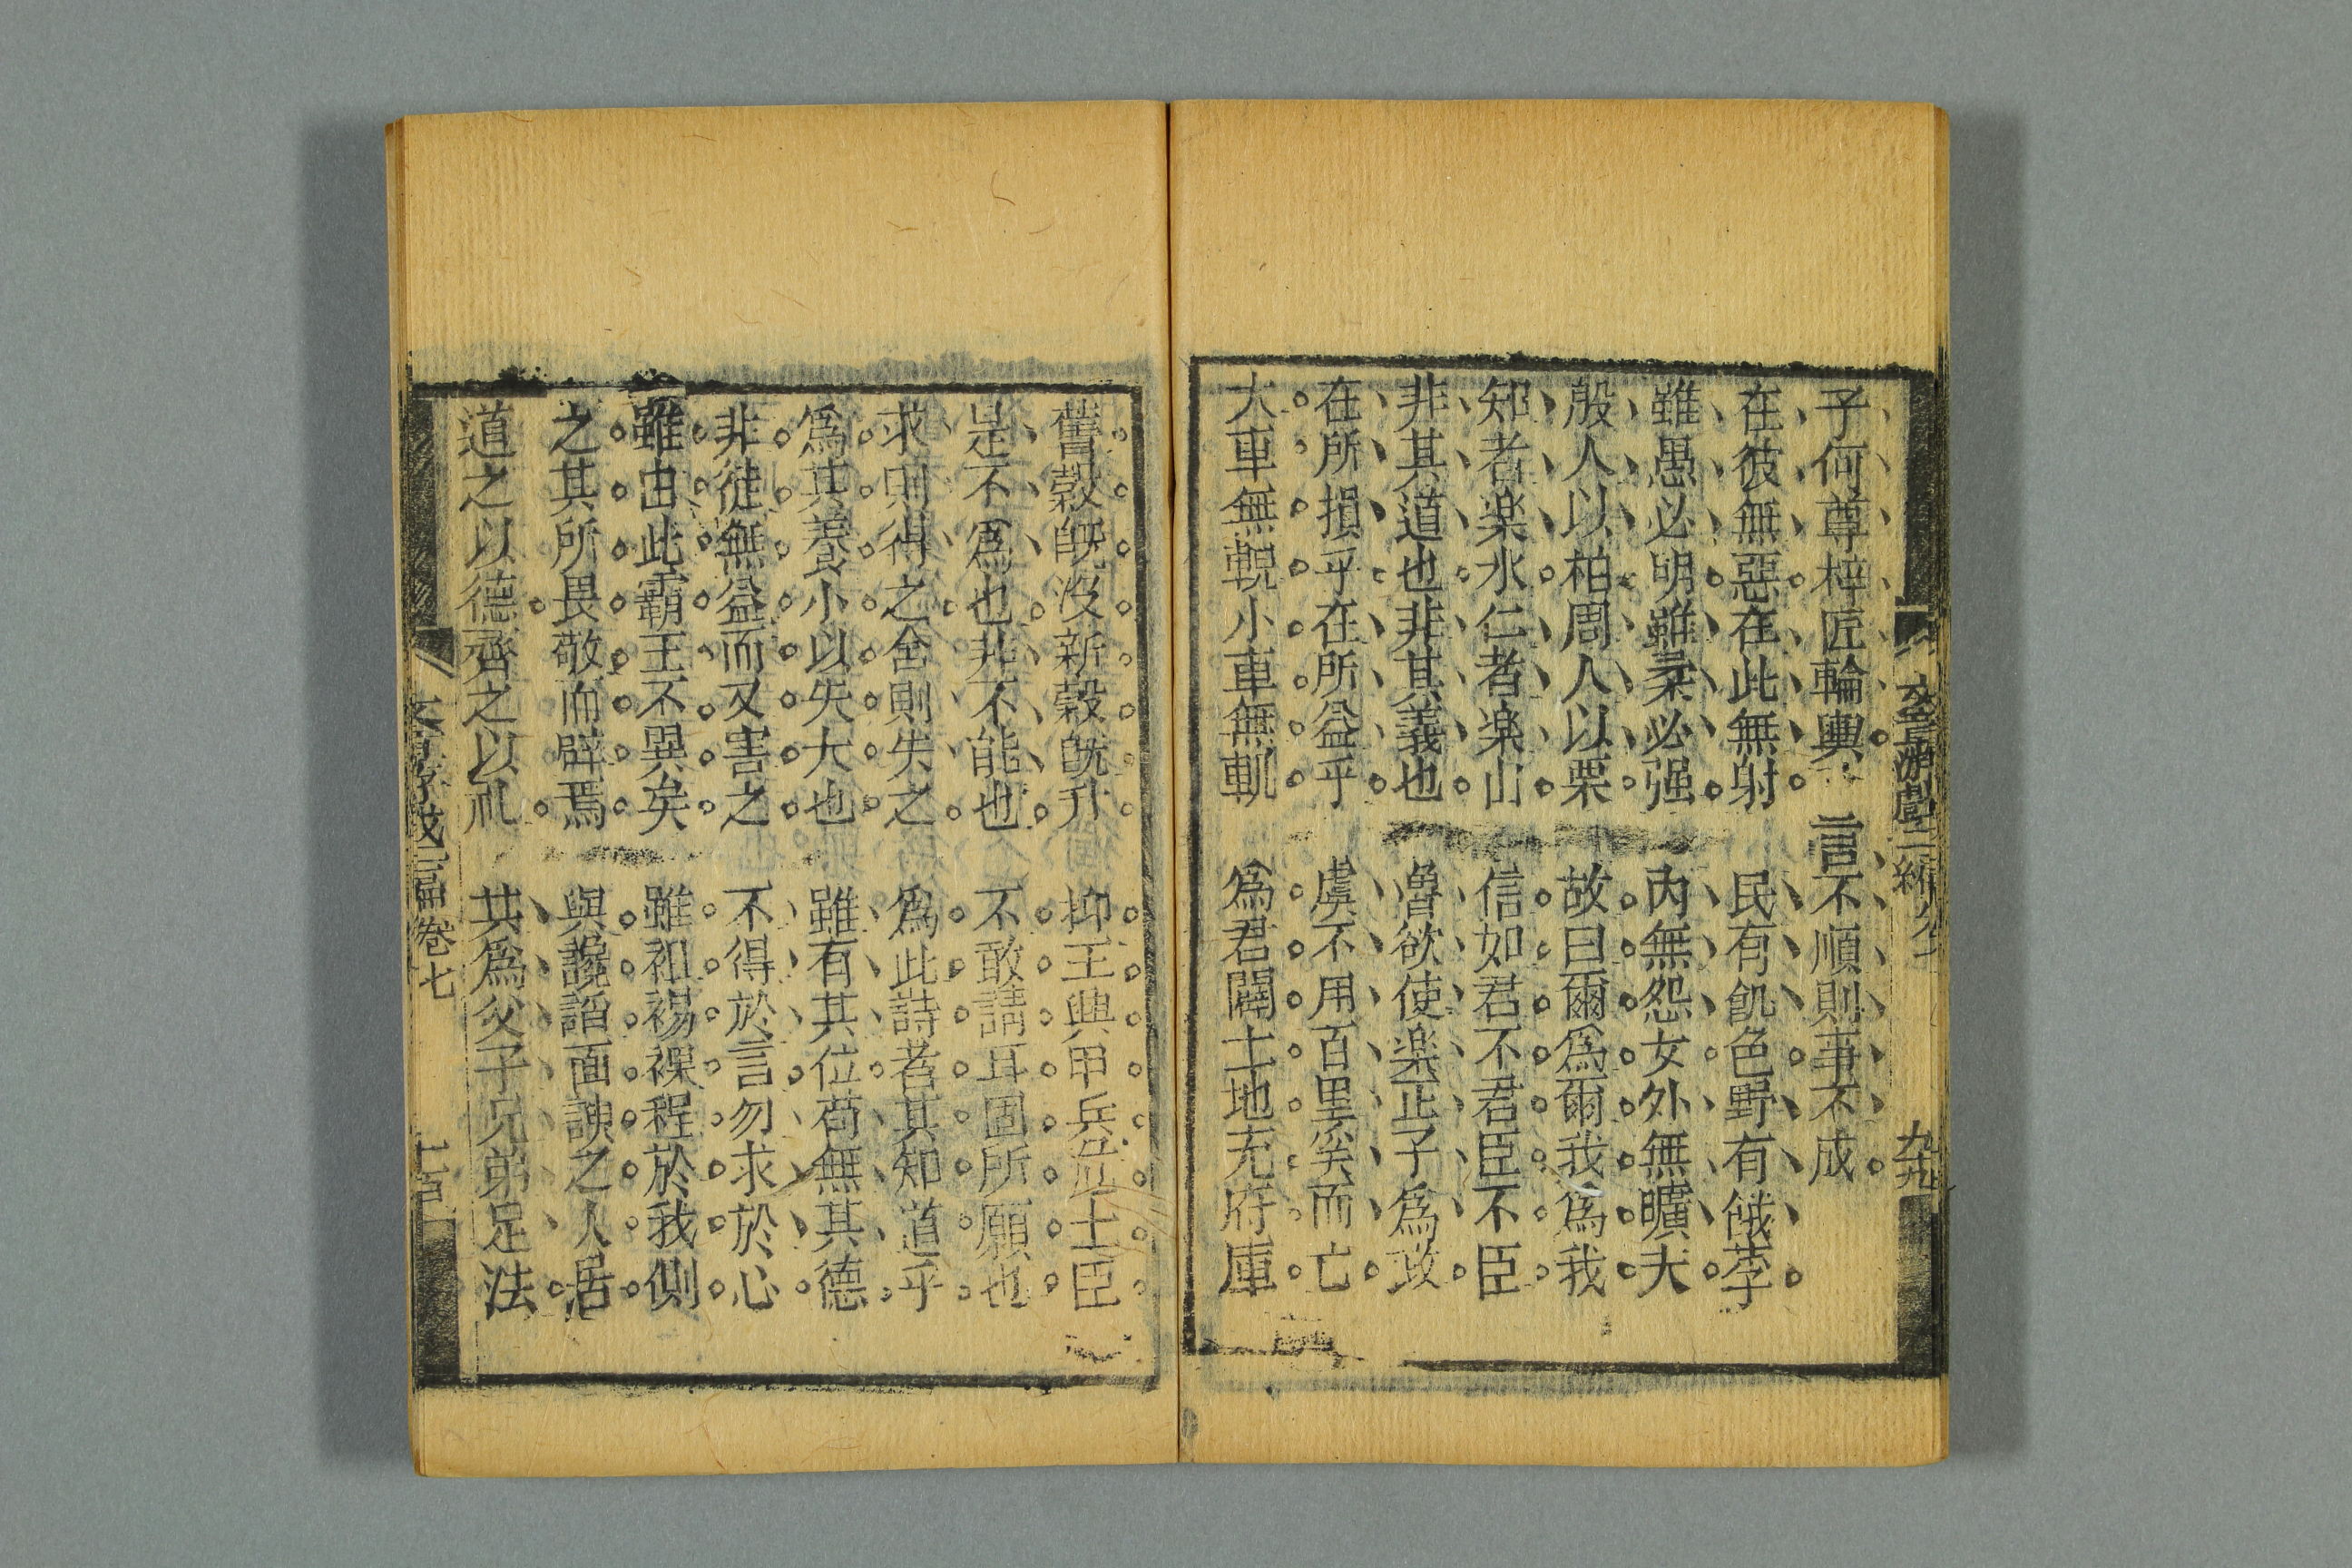 子何尊梓匠輪輿　言不順則事不成
在彼無惡在此無射　民有飢色野有餓莩
雖愚必明雖柔必强　内無怨女外無曠夫
殷人以柏周人以栗　故曰爾爲爾我爲我
知者楽水仁者楽山　信如君不君臣不臣
非其道也非其義也　魯欲使楽正子爲政
在所損乎在所益乎　虞不用百里奚而亡
大車無輗小車無軏　爲君闢土地充府庫
舊穀既没新穀既升　抑王興甲兵危士臣
是不爲也非不能也　不敢請耳固所願也
求則得之舍則失之　爲此詩者其知道乎
爲其養小以失大也　雖有其位苟無其德
非徒無益而又害之　不得於言勿求於心
雖由此霸王不異矣　雖袒裼裸裎於我側
之其所畏敬而辟焉　與讒諂面諛之人居
道之以德齊之以礼　其爲父子兄弟足法
卷七